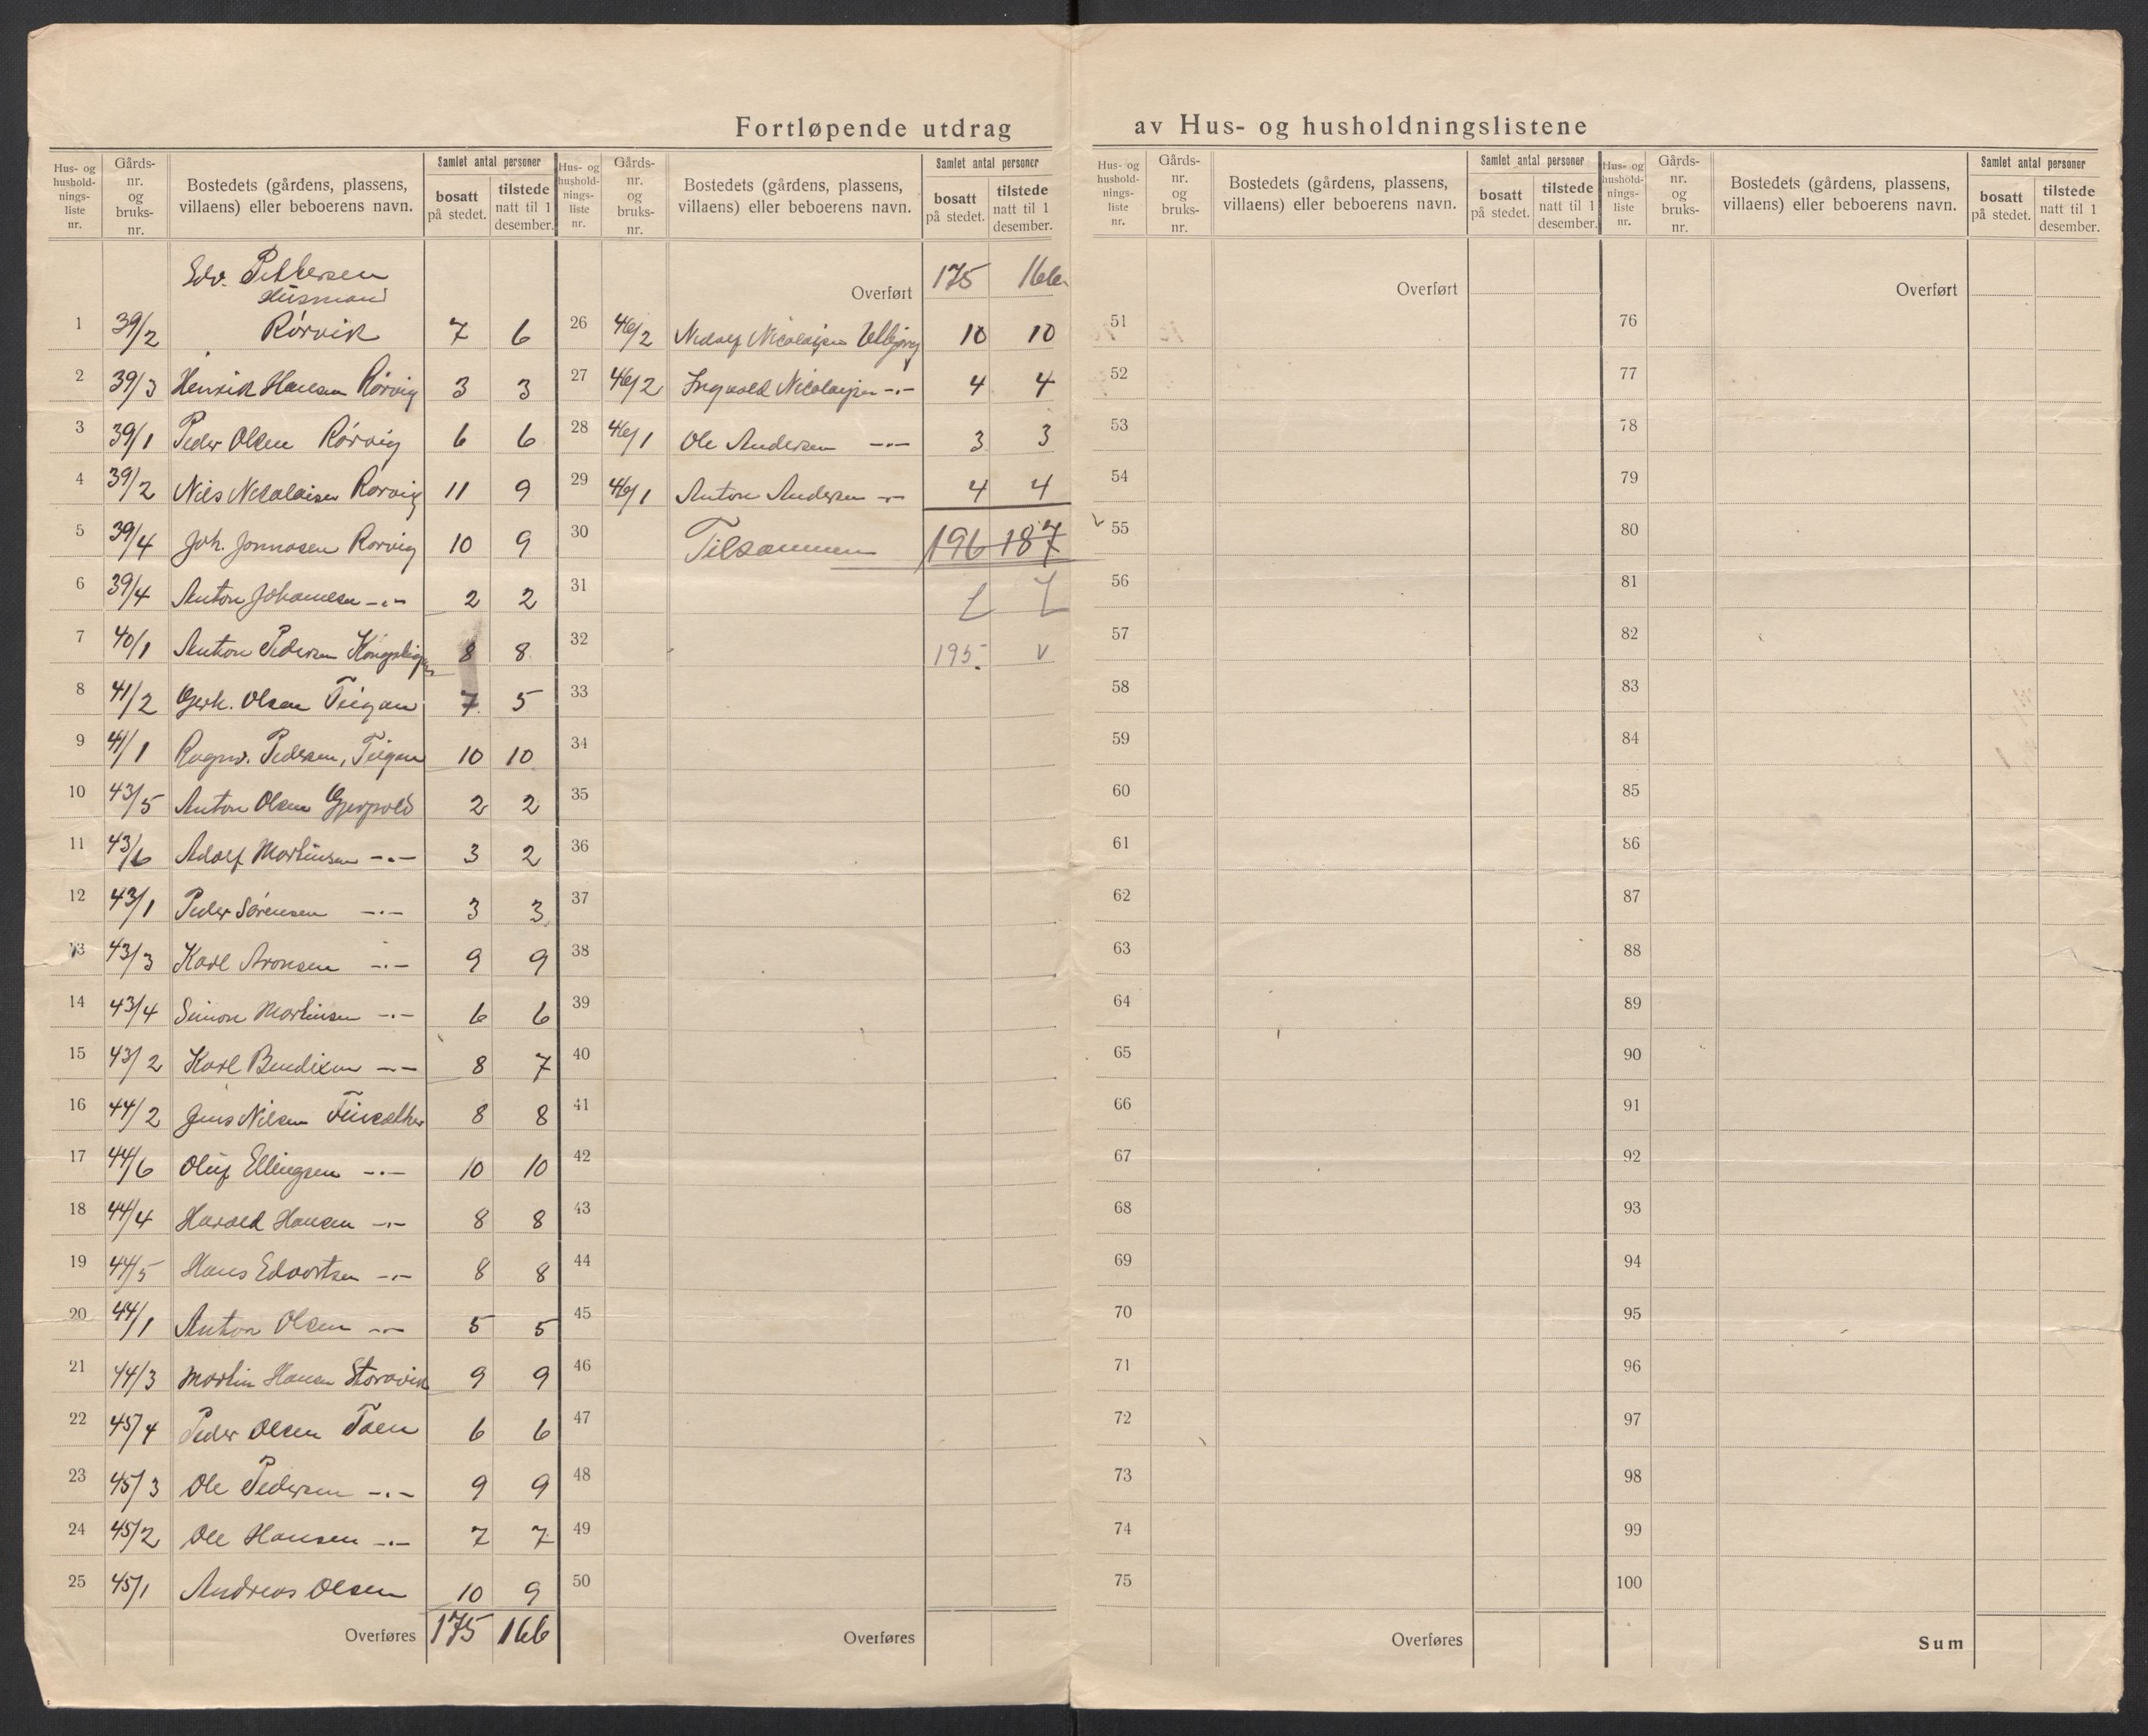 Fortløpende utdrag av Hus- og husholdningslistene
Hus- og hushold-nings-liste nr. Gårds-nr. og bruks-nr. Bostedets (gårdens, plassens, villaens) eller beboerens navn. Samlet antal personer bosatt på stedet. tilstede natt til 1 desember.
Edv. Pettersen
Husmand
1 39/2 Rørvik 7 6
2 39/3 Henrik Hansen Rørvig 3 3
3 39/1 Peder Olsen Rørvig 6 6
4 39/2 Nils Nicolaisen Rørvig 11 9
5 39/4 Joh. Jonnasen Rørvig 10 9
6 39/4 Anton Johansen -"- 2 2
7 40/1 Anton Pedersen 8 8
8 41/2 Gerh. Olsen Teigan 7 5
9 41/1 Ragnv. Pedersen, Teigan 10 10
10 43/5 Anton Olsen Gjerpold 2 2
11 43/6 Adolf Martinsen -"- 3 2
12 43/1 Peder Sörensen -"- 3 3
13 43/3 Karl Aronsen -"- 9 9
14 43/4 Simon Martinsen -"- 6 6
15 43/2 Karl Bendixen -"- 8 7
16 44/2 Jens Nilsen Finsæther 8 8
17 44/6 Oluf Ellingsen -"- 10 10
18 44/4 Harald Hansen -"- 8 8
19 44/5 Hans Edvartsen -"- 8 8
20 44/1 Anton Olsen -"- 5 5
21 44/3 Martin Hansen Storavik 9 9
22 45/4 Peder Olsen Toen 6 6
23 45/3 Ole Pedersen -"- 9 9
24 45/2 Ole Hansen -"- 7 7
25 45/1 Andreas Olsen 10 9
Overføres 175 166
Hus- og hushold-nings-liste nr. Gårds-nr. og bruks-nr. Bostedets (gårdens, plassens, villaens) eller beboerens navn. Samlet antal personer bosatt på stedet. tilstede natt til 1 desember.
Overført 175 166
26 46/2 Nicolaisen 10 10
27 46/2 Ingvald Nicolaisen -"- 4 4
28 46/1 Ole Andersen -"- 3 3
29 46/1 Anton Andersen -"- 4 4
30 Tilsammen 196 187
31
32 195
33
34
35
36
37
38
39
40
41
42
43
44
45
46
47
48
49
50
Overføres
Hus- og hushold-nings-liste nr. Gårds-nr. og bruks-nr. Bostedets (gårdens, plassens, villaens) eller beboerens navn. Samlet antal personer bosatt på stedet. tilstede natt til 1 desember.
Overført
51
52
53
54
55
56
57
58
59
60
61
62
63
64
65
66
67
68
69
70
71
72
73
74
75
Overføres
Hus- og hushold-nings-liste nr. Gårds-nr. og bruks-nr. Bostedets (gårdens, plassens, villaens) eller beboerens navn. Samlet antal personer bosatt på stedet. tilstede natt til 1 desember.
Overført
76
77
78
79
80
81
82
83
84
85
86
87
88
89
90
91
92
93
94
95
96
97
98
99
100
Sum